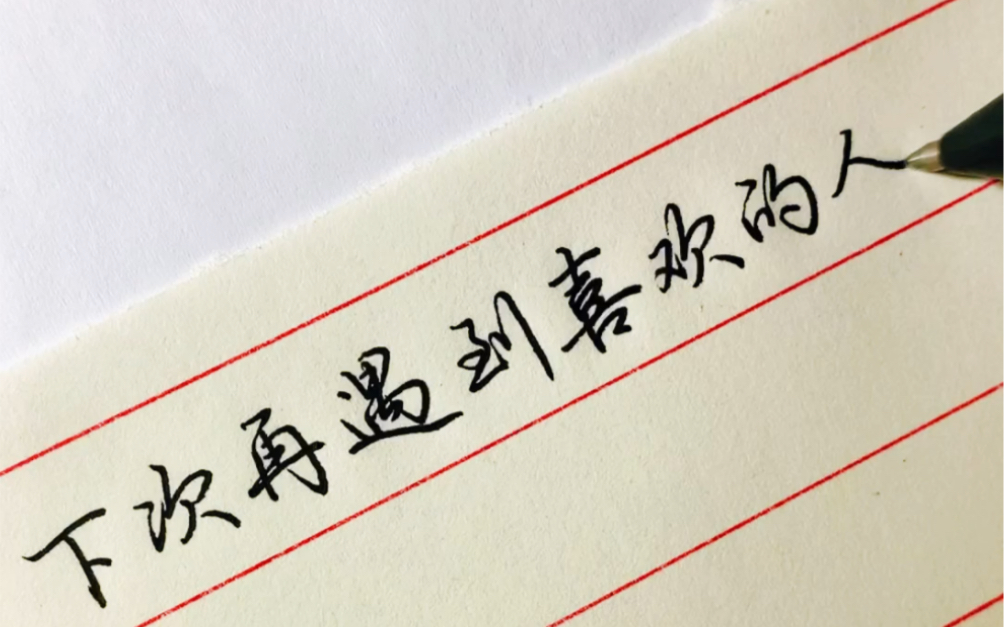 下次再遇到喜欢的人